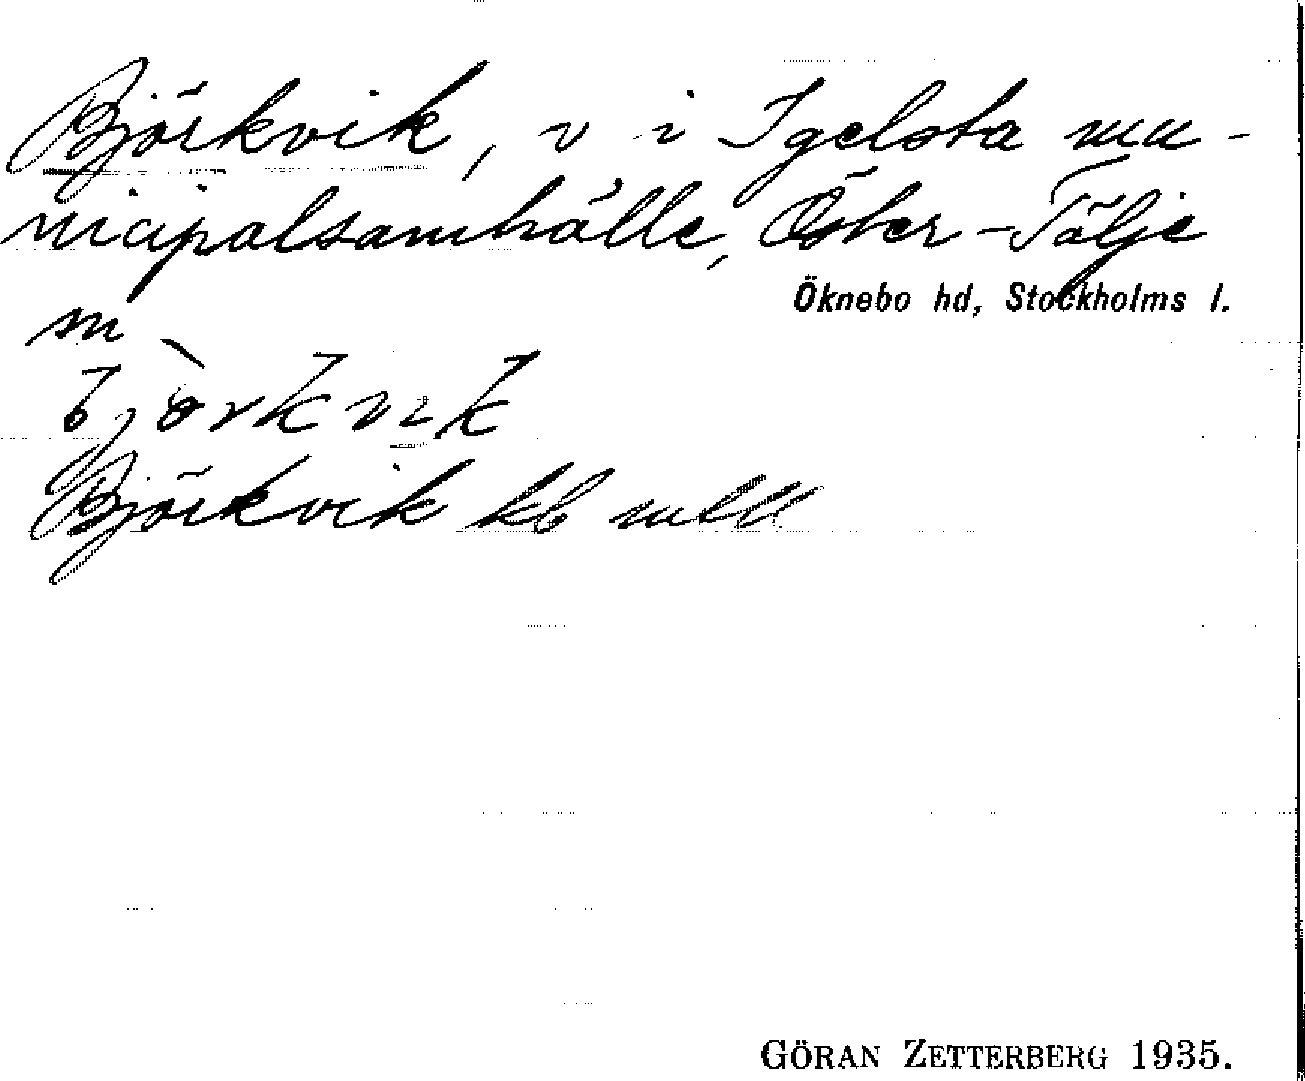 Björkvik, v i Igelsta mu-
nicipalsamhälle, Öster-Tälje
Öknebo hd, Stockholms l.
sn
bjö̀rkvik
Björkvik kb
GÖRAN ZETTERBERG 1935.